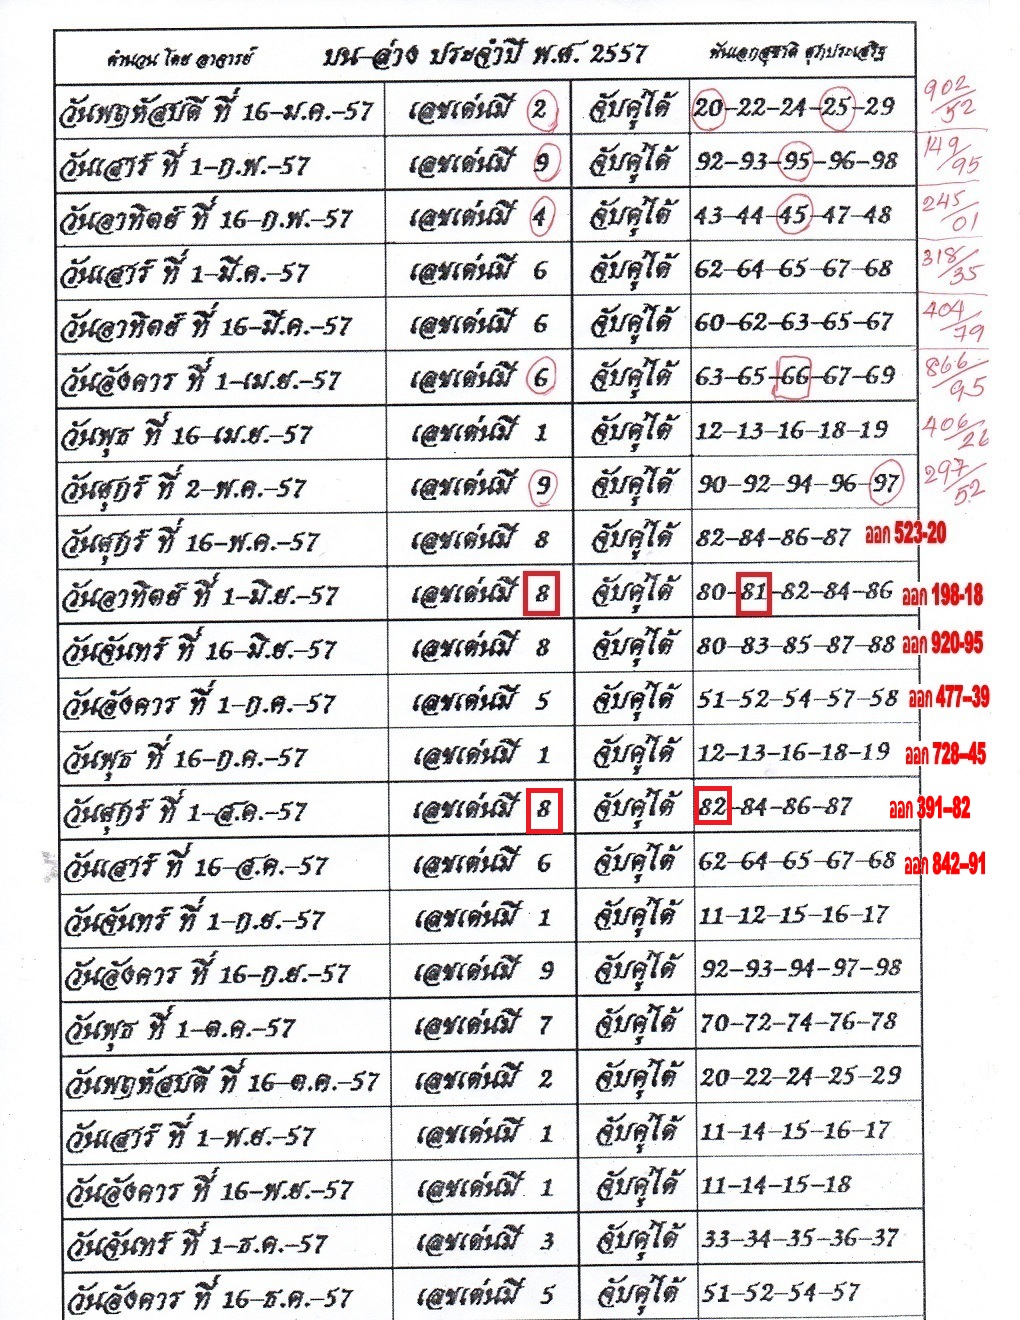 คำนวน โดย อาจารย์ บน-ล่าง ประจำปี พ.ศ. 2557 พันเอกสุชาติ สุภประเสริฐ
วันพฤหัสบดี ที่ 16-ม.ค.-57 เลขเด่นมี 2 จับคู่ได้ 20-22-24-25-29 902/52
วันเสาร์ ที่ 1-ก.พ.-57 เลขเด่นมี 9 จับคู่ได้ 92-93-95-96-98 149/95
วันอาทิตย์ ที่ 16-ก.พ.-57 เลขเด่นมี 4 จับคู่ได้ 43-44-45-47-48 245/01
วันเสาร์ ที่ 1-มี.ค.-57 เลขเด่นมี 6 จับคู่ได้ 62-64-65-67-68 318/35
วันอาทิตย์ ที่ 16-มี.ค.-57 เลขเด่นมี 6 จับคู่ได้ 60-62-63-65-67 404/79
วันอังคาร ที่ 1-เม.ย.-57 เลขเด่นมี 6 จับคู่ได้ 63-65-66-67-69 866/95
วันพุธ ที่ 16-เม.ย.-57 เลขเด่นมี 1 จับคู่ได้ 12-13-16-18-19 406/
วันศุกร์ ที่ 2-พ.ค.-57 เลขเด่นมี 9 จับคู่ได้ 90-92-94-96-97 297/52
วันศุกร์ ที่ 16-พ.ค.-57 เลขเด่นมี 8 จับคู่ได้ 82-84-86-87 ออก 523-20
วันอาทิตย์ ที่ 1-มิ.ย.-57 เลขเด่นมี 8 จับคู่ได้ 80-81-82-84-86 ออก 198-18
วันจันทร์ ที่ 16-มิ.ย.-57 เลขเด่นมี 8 จับคู่ได้ 80-83-85-87-88 ออก 920-95
วันอังคาร ที่ 1-ก.ค.-57 เลขเด่นมี 5 จับคู่ได้ 51-52-54-57-58 ออก 477-39
วันพุธ ที่ 16-ก.ค.-57 เลขเด่นมี 1 จับคู่ได้ 12-13-16-18-19 ออก 728-45
วันศุกร์ ที่ 1-ส.ค.-57 เลขเด่นมี 8 จับคู่ได้ 82-84-86-87 ออก 391-82
วันเสาร์ ที่ 16-ส.ค.-57 เลขเด่นมี 6 จับคู่ได้ 62-64-65-67-68 ออก 842-91
วันจันทร์ ที่ 1-ก.ย.-57 เลขเด่นมี 1 จับคู่ได้ 11-12-15-16-17
วันอังคาร ที่ 16-ก.ย.-57 เลขเด่นมี 9 จับคู่ได้ 92-93-94-97-98
วันพุธ ที่ 1-ต.ค.-57 เลขเด่นมี 7 จับคู่ได้ 70-72-74-76-78
วันพฤหัสบดี ที่ 16-ต.ค.-57 เลขเด่นมี 2 จับคู่ได้ 20-22-24-25-29
วันเสาร์ ที่ 1-พ.ย.-57 เลขเด่นมี 1 จับคู่ได้ 11-14-15-16-17
วันอังคาร ที่ 16-พ.ย.-57 เลขเด่นมี 1 จับคู่ได้ 11-14-15-18
วันจันทร์ ที่ 1-ธ.ค.-57 เลขเด่นมี 3 จับคู่ได้ 33-34-35-36-37
วันอังคาร ที่ 16-ธ.ค.-57 เลขเด่นมี 5 จับคู่ได้ 51-52-54-57